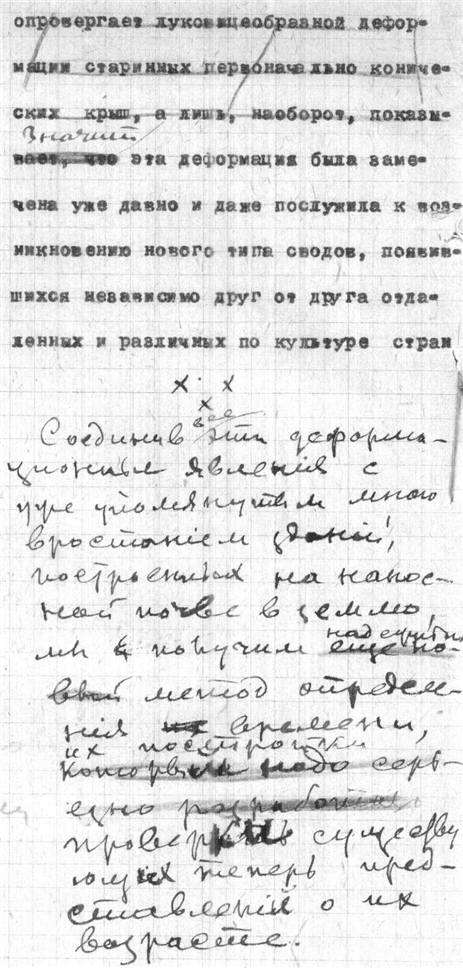 опровергает луковицеобразной дефор-
мации старинных первоначально кониче-
ских крыш, а лишь, наоборот, показы-
Значит
вает, что эта деформация была заме-
чена уже давно и даже послужила к воз-
никновению нового типа сводов, появив-
шихся независимо друг от друга отда-
ленных и различных по культуре стран
х х
х
все
Соединив эти деформа-
ционные явления с
уже упомянутым мною
вростанием зданий,
построенных на нанос-
ной почве в землю,
мы получим еще но-
вый метод определе-
ния времени,
их постройки
которые надо серь-
езно разработать
проверки существу
ющих теперь пред-
ставлений о их
возрасте.